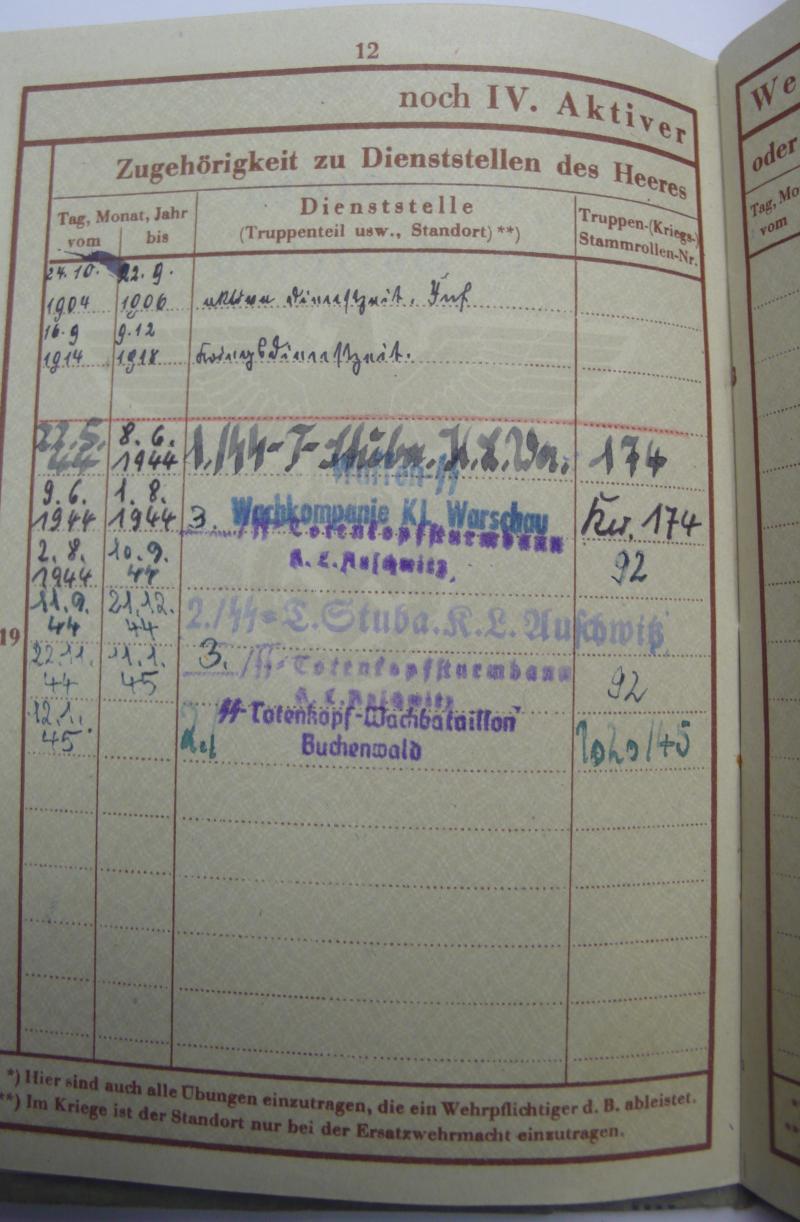 12
noch IV. Aktiver
Zugehörigkeit zu Dienststellen des Heeres
Tag, Monat, Jahr
vom bis
Dienststelle
(Truppenteil usw., Standort) **)
Truppen-(Kriegs-)
Stammrollen-Nr.
24.10. 22.9.
1904 1906 aktive Dienstzeit. Inf
16.9 9.12
1914 1918 Kriegsdienstzeit.
22.5. 8.6.
44 1944 1./SS-T-Stuba. K.L.Wa. 174
Waffen-SS
9.6. 1.8.
1944 1944 3. Wachkompanie KL Warschau Kw. 174
/SS-Totenkopfsturmbann
2.8. 10.9.
1944 44 K.L.Auschwitz, 92
11.9. 21.12.
44 44 2./SS=T.Stuba.K.L.Auschwitz
19
22.11. 11.1. 3./SS-Totenkopfsturmbann
44 45 K.L.Auschwitz 92
12.1. SS-Totenkopf-Wachbataillon
45. Buchenwald
*) Hier sind auch alle Übungen einzutragen, die ein Wehrpflichtiger d. B. ableistet.
**) Im Kriege ist der Standort nur bei der Ersatzwehrmacht einzutragen.
We
oder
Tag, Mo
vom